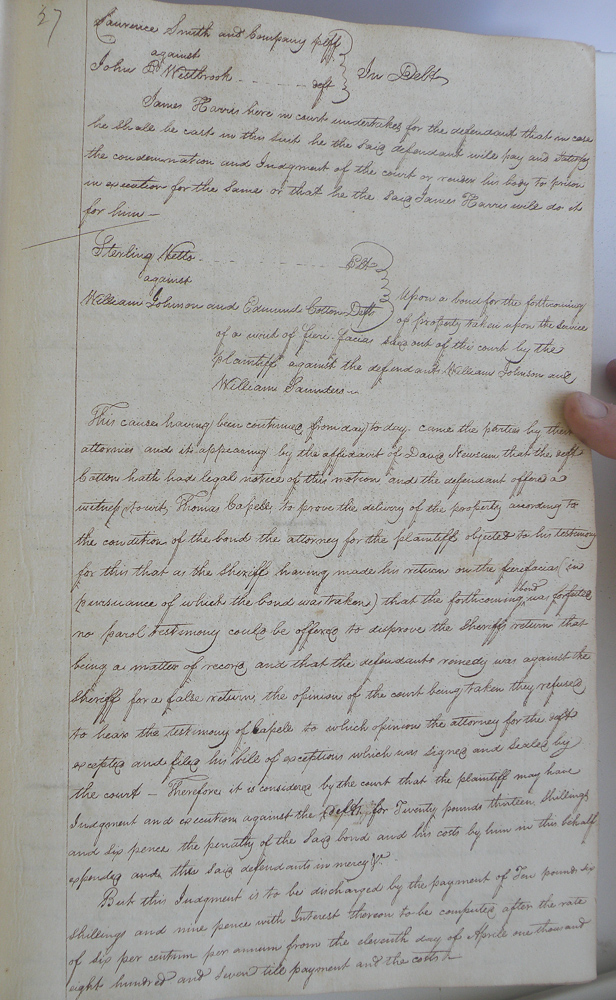 27
Laurence Smith and Company plff
against
John Westbrook deft
In Debt
James Harris here in court undertakes for the defendant that in case
he shall be cast in this suit he the said defendant will pay and satisfy
the condemnation and Judgment of the court or render his body to prison
in execution for the same or that he the said James Harris will do it
for him
Sterling Netto Plt
against
William Johnson and Edmund Cotton Defts
Upon a bond for the forthcoming
of property taken upon the service
of a writ of fieri facias sued out of this court by the
plaintiff against the defendants William Johnson and
William Saunders
This cause having been continued from day to day came the parties by their
attornies and it appearing by the affidavit of David Newsum that the deft
Cotton hath had legal notice of this motion and the defendant offered a
witness towit, Thomas Capell, to prove the delivery of the property according to
the condition of the bond the attorney for the plaintiff objected to his testimony
for this that as the Sheriff having made his return on the fierefacias (in
persuance of which the bond was taken) that the forthcoming bond was forfeited
no parol testimony could be offered to disprove the Sheriffs return that
being a matter of record and that the defendants remedy was against the
Sheriff for a false return, the opinion of the court being taken they refused
to hear the testimony of Capele to which opinion the attorney for the deft
excepted and filed his bill of exceptions which was signed and sealed by
the court — Therefore it is considered by the court that the plaintiff may have
Judgment and execution against the defts for Twenty pounds thirteen shillings
and six pence the penalty of the said bond and his costs by him in this behalf
expended and the said defendants in mercy &c.
But this Judgment is to be discharged by the payment of Ten pounds six
shillings and nine pence with Interest thereon to be computed after the rate
of six per centum per annum from the eleventh day of April one thousand
eight hundred and seven till payment and the costs